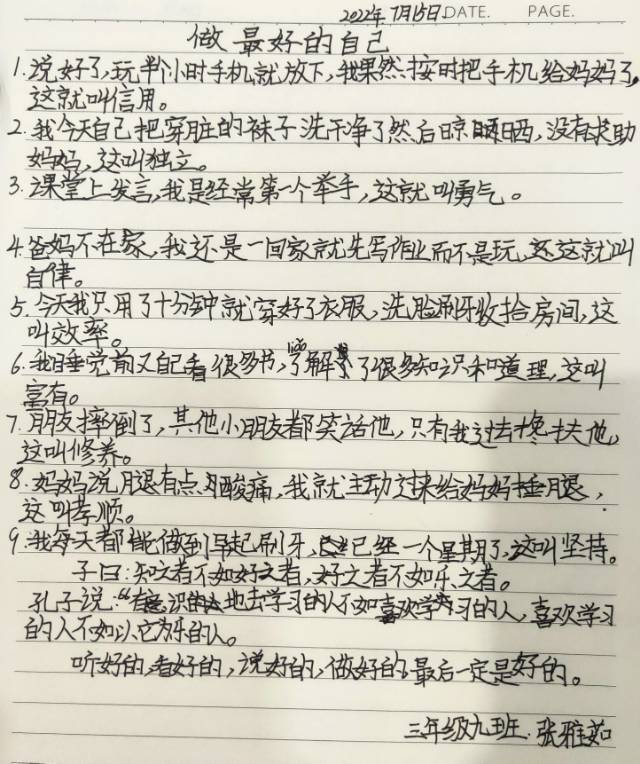 2022年7月15日 DATE. PAGE.
做最好的自己
1.说好了,玩半个小时手机就放下,我果然按时把手机给妈妈了,
这就叫信用。
2.我今天自己把穿脏的袜子洗干净了然后晾晒,没有求助
妈妈,这叫独立。
3.课堂上发言,我是经常第一个举手,这就叫勇气。
4.爸妈不在家,我还是一回家就先写作业而不是玩,这就叫
自律。
5.今天我只用了十分钟就穿好了衣服,洗脸刷牙收拾房间,这
叫效率。
6.我睡觉前又自己看很多书,了解了很多知识和道理,这叫
富有。
7.朋友摔倒了,其他小朋友都笑话他,只有我过去搀扶他,
这叫修养。
8.妈妈说腿有点酸痛,我就主动过来给妈妈捶腿,
这叫孝顺。
9.我每天都能做到早起刷牙,已经一个星期了,这叫坚持。
子曰:知之者不如好之者,好之者不如乐之者。
孔子说:“有意识地去学习的人不如喜欢学习的人,喜欢学习
的人不如以它为乐的人。
听好的,看好的,说好的,做好的最后一定是好的。
三年级九班.张雅茹